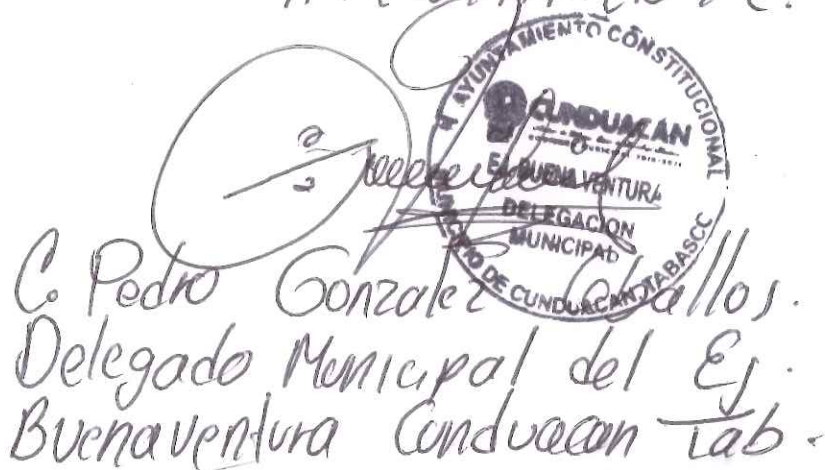 H. AYUNTAMIENTO CONSTITUCIONAL
CUNDUACAN
EJ. BUENA VENTURA
DELEGACION
MUNICIPAL
MUNICIPIO DE CUNDUACAN, TABASCO
C. Pedro Gonzalez Ceballos.
Delegado Municipal del Ej.
Buenaventura Cunduacan Tab.